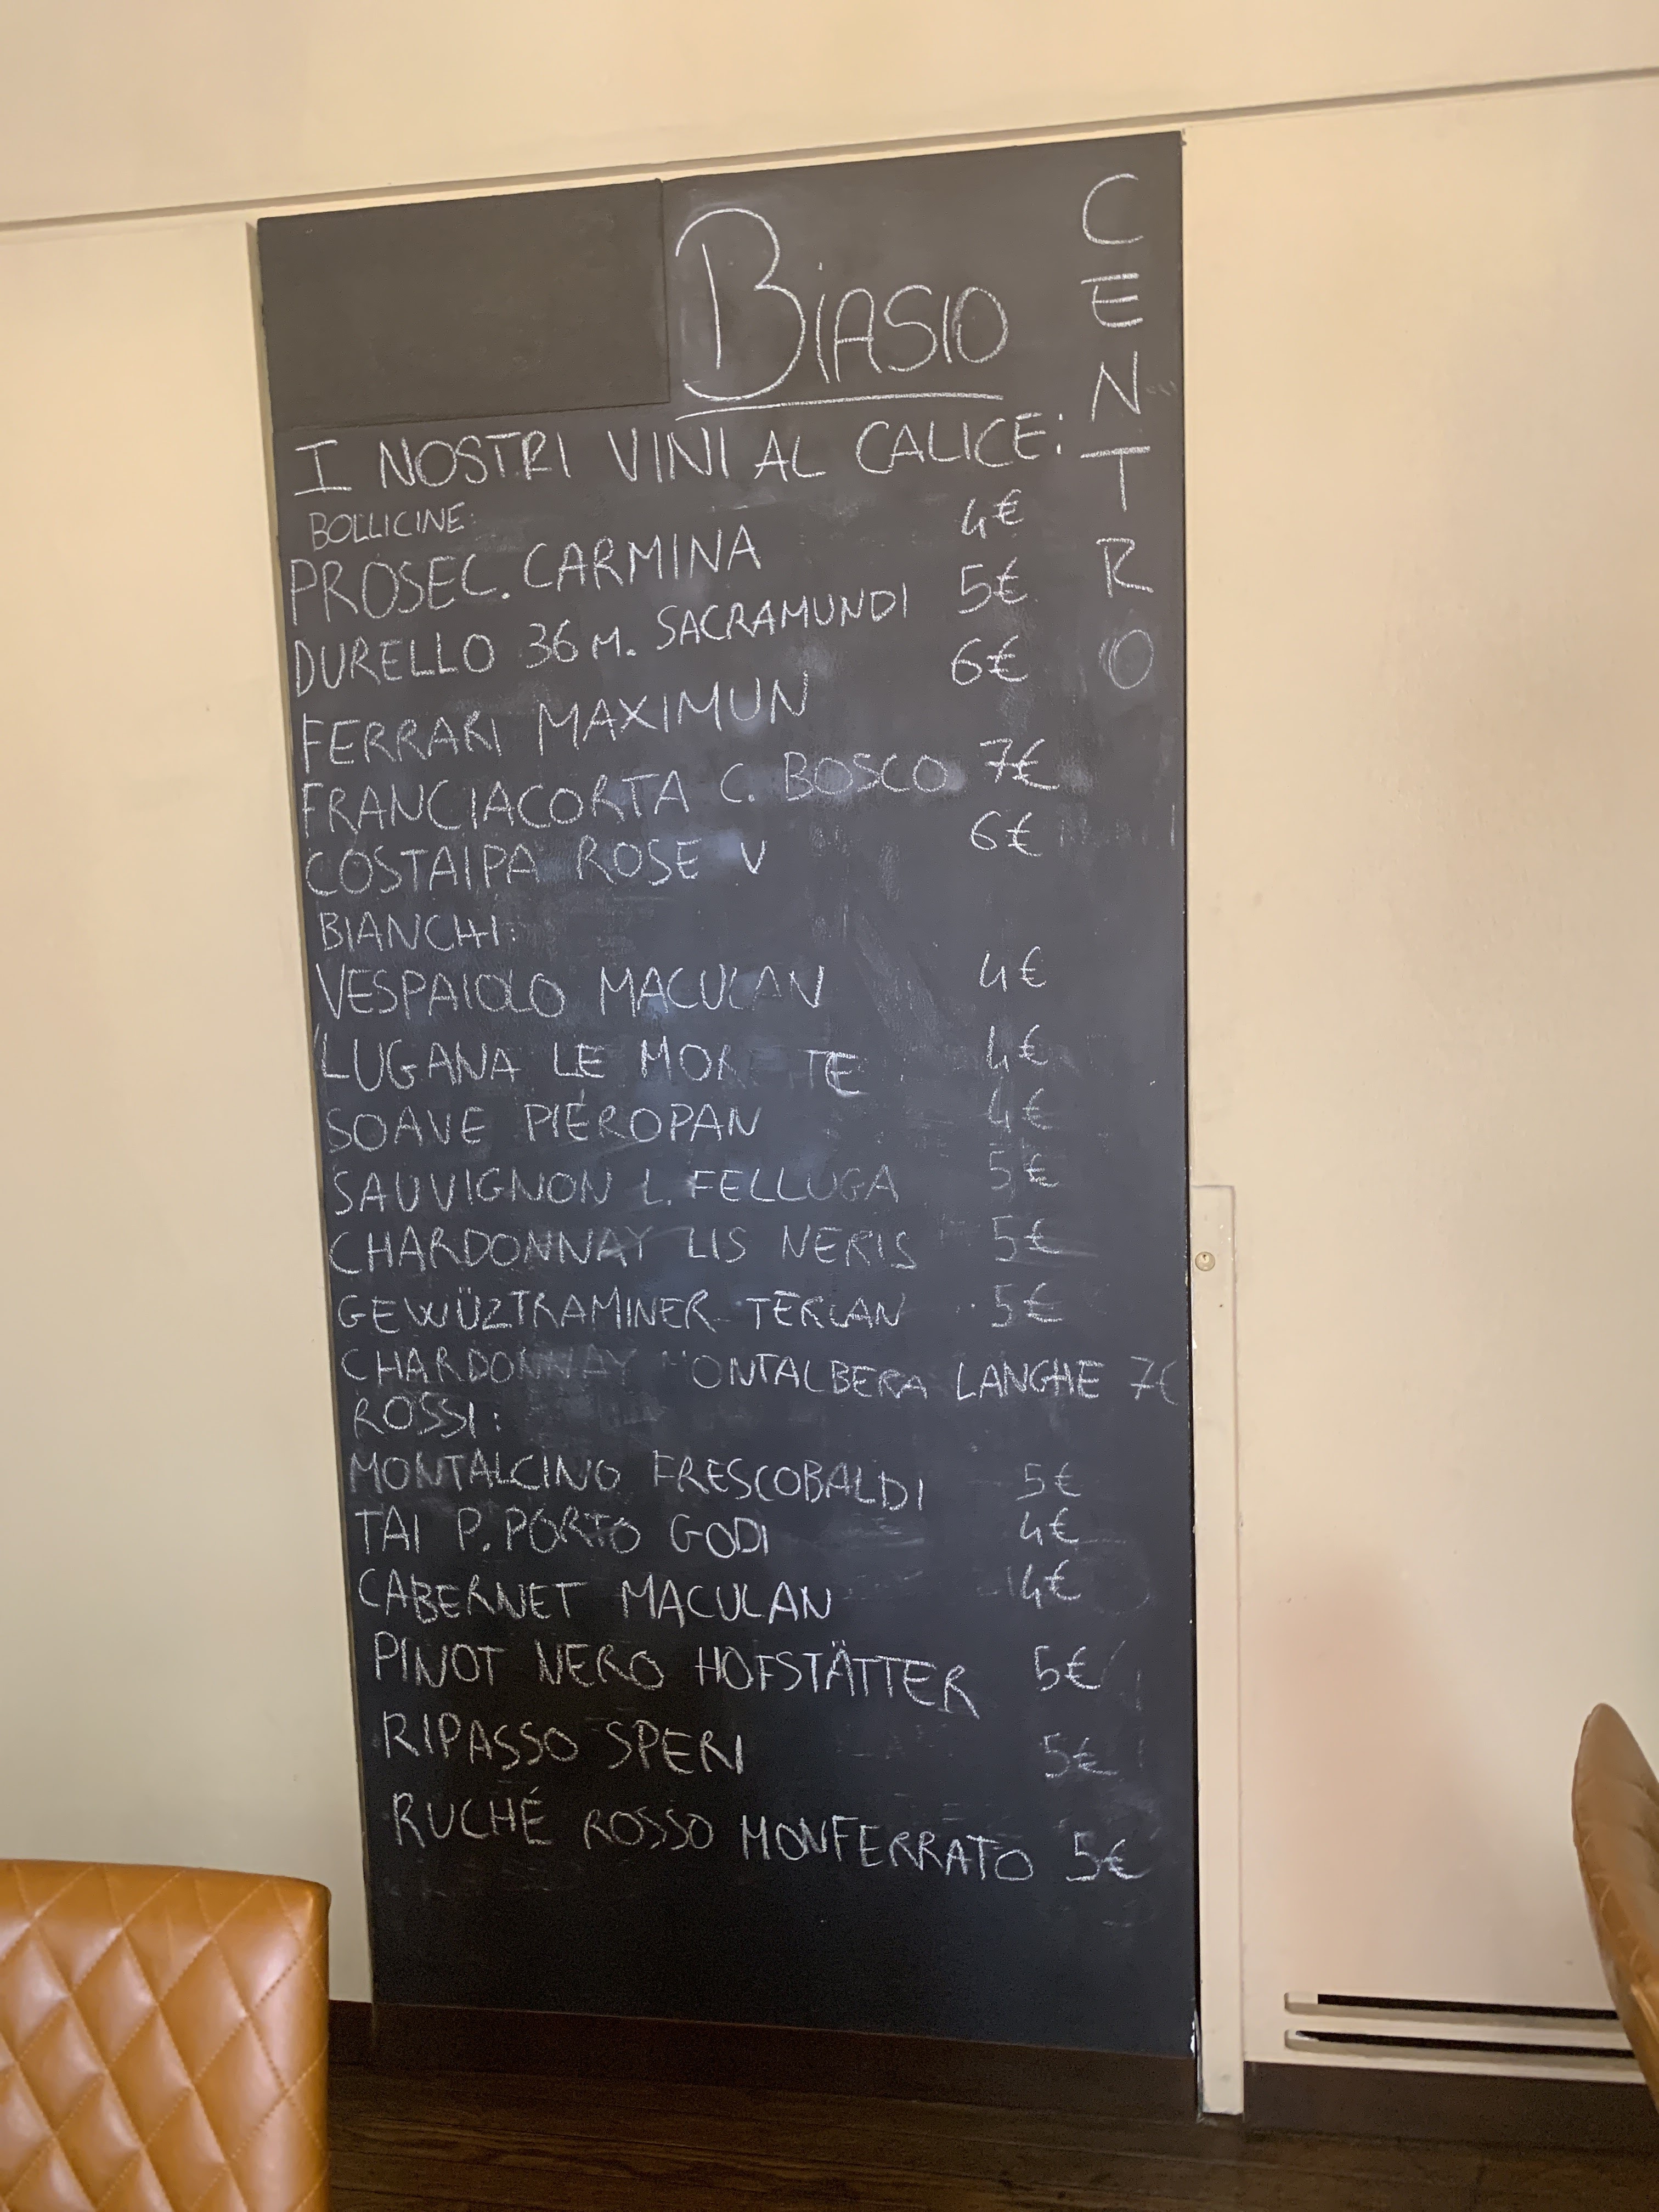 BIASIO
CENTRO
I NOSTRI VINI AL CALICE:
BOLLICINE:
PROSEC. CARMINA 4€
DURELLO 36 M. SACRAMUNDI 5€
FERRARI MAXIMUN 6€
FRANCIACORTA C. BOSCO 7€
COSTAIPA ROSE V 6€
BIANCHI:
VESPAIOLO MACULAN 4€
LUGANA LE MORETE 4€
SOAVE PIEROPAN 4€
SAUVIGNON L. FELLUGA 5€
CHARDONNAY LIS NERIS 5€
GEWÜZTRAMINER TERLAN 5€
CHARDONNAY MONTALBERA LANGHE 7€
ROSSI:
MONTALCINO FRESCOBALDI 5€
TAI P. PORTO GODI 4€
CABERNET MACULAN 4€
PINOT NERO HOFSTÄTTER 5€
RIPASSO SPERI 5€
RUCHÉ ROSSO MONFERRATO 5€